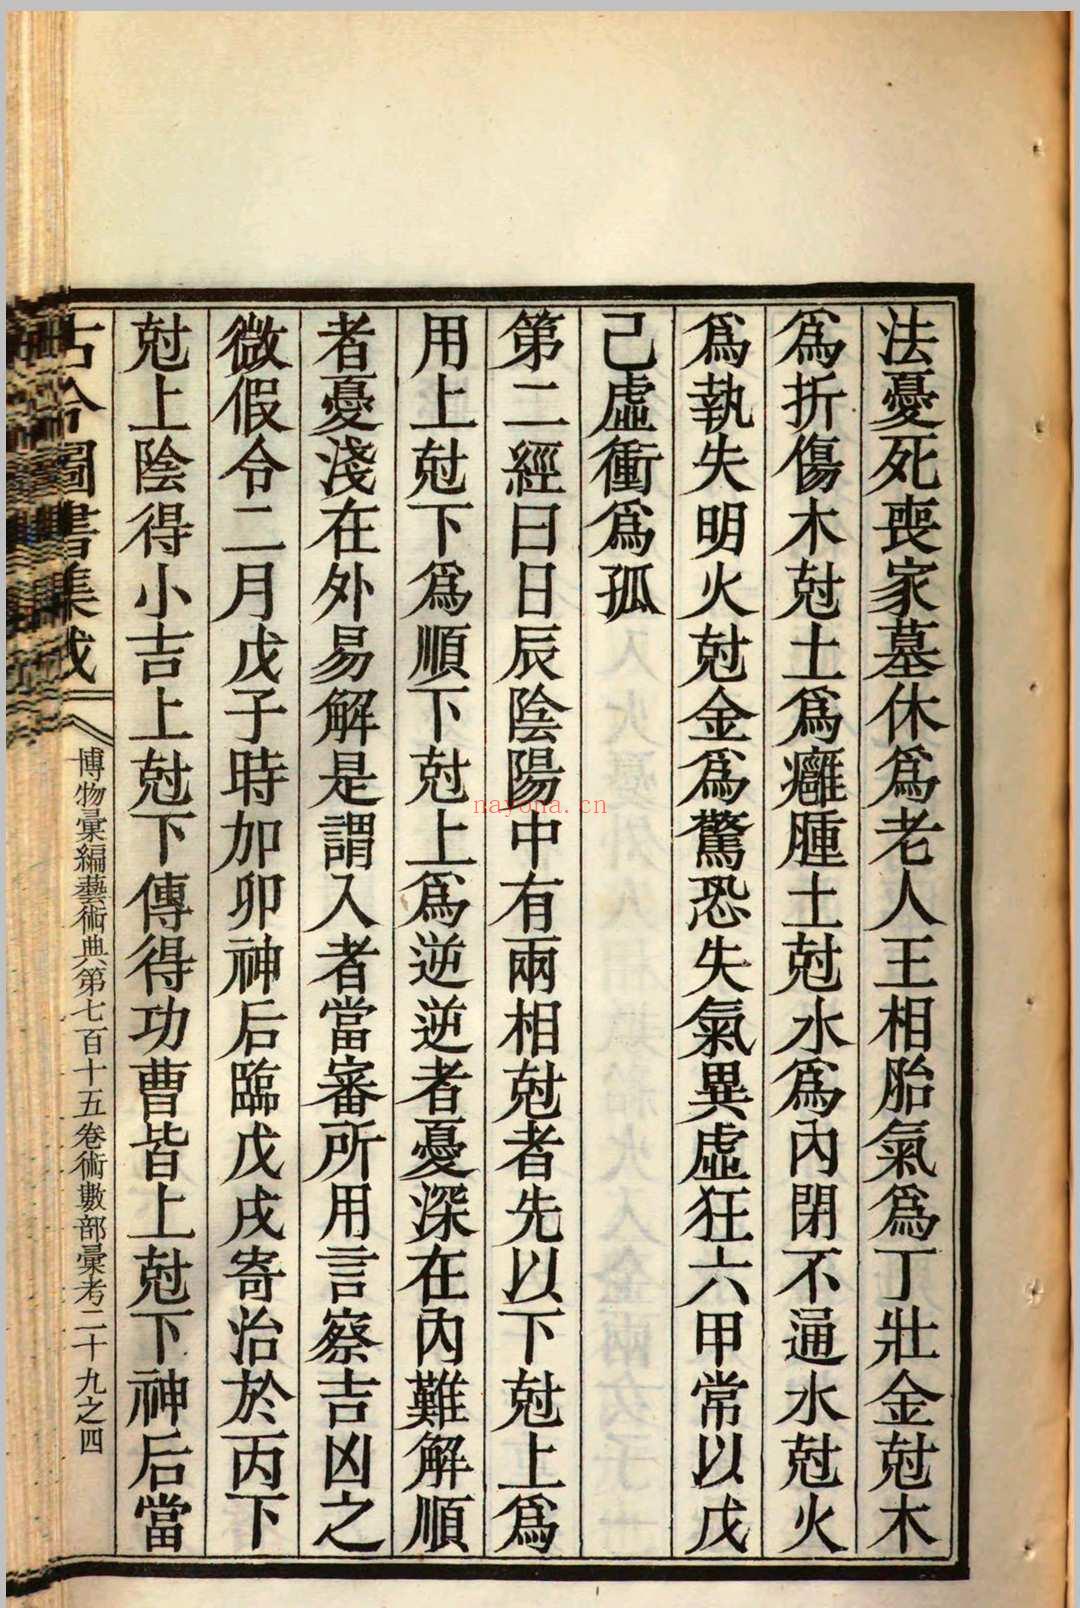 法憂死喪家墓休爲老人王相胎氣爲丁壯金尅木
爲折傷木尅土爲癰腫土尅水爲內閉不通水尅火
爲執失明火尅金爲驚恐失氣異虛狂六甲常以戊
己虛衝爲孤
第二經曰日辰陰陽中有兩相尅者先以下尅上爲
用上尅下爲順下尅上爲逆逆者憂深在內難解順
者憂淺在外易解是謂入者當審所用言察吉凶之
微假令二月戊子時加卯神后臨戊戌寄治於丙下
尅上陰得小吉上尅下傳得功曹皆上尅下神后當
古今圖書集成
博物彙編藝術典第七百十五卷術數部彙考二十九之四
nayona.cn